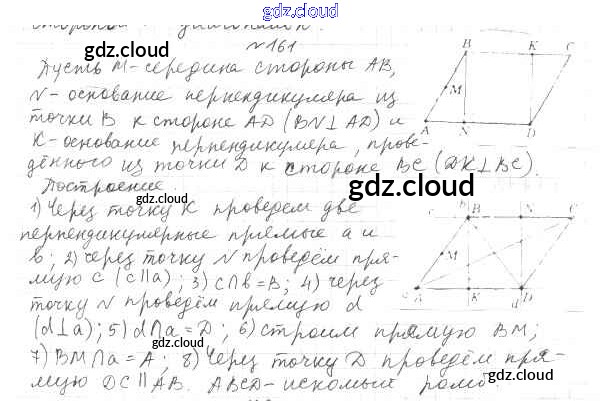 gdz.cloud
стороной диагональ.
№161
Пусть M-середина стороны AB,
N-основание перпендикуляра из
точки B к стороне AD (BN⊥AD) и
K-основание перпендикуляра, прове-
дённого из точки D к стороне BC (DK⊥BC).
Построение.
1) Через точку K проведём две
перпендикулярные прямые a и
b; 2) через точку N проведём пря-
мую c (c∥a); 3) c∩b=B; 4) через
точку N проведём прямую d
(d⊥a); 5) d∩a=D; 6) строим прямую BM;
7) BM∩a=A; 8) Через точку D проведём пря-
мую DC∥AB. ABCD-искомый ромб.
B K C
M
A N D
b B N C
M
a A K d D
gdz.cloud
gdz.cloud
gdz.cloud
gdz.cloud
gdz.cloud
gdz.cloud
gdz.cloud
gdz.cloud